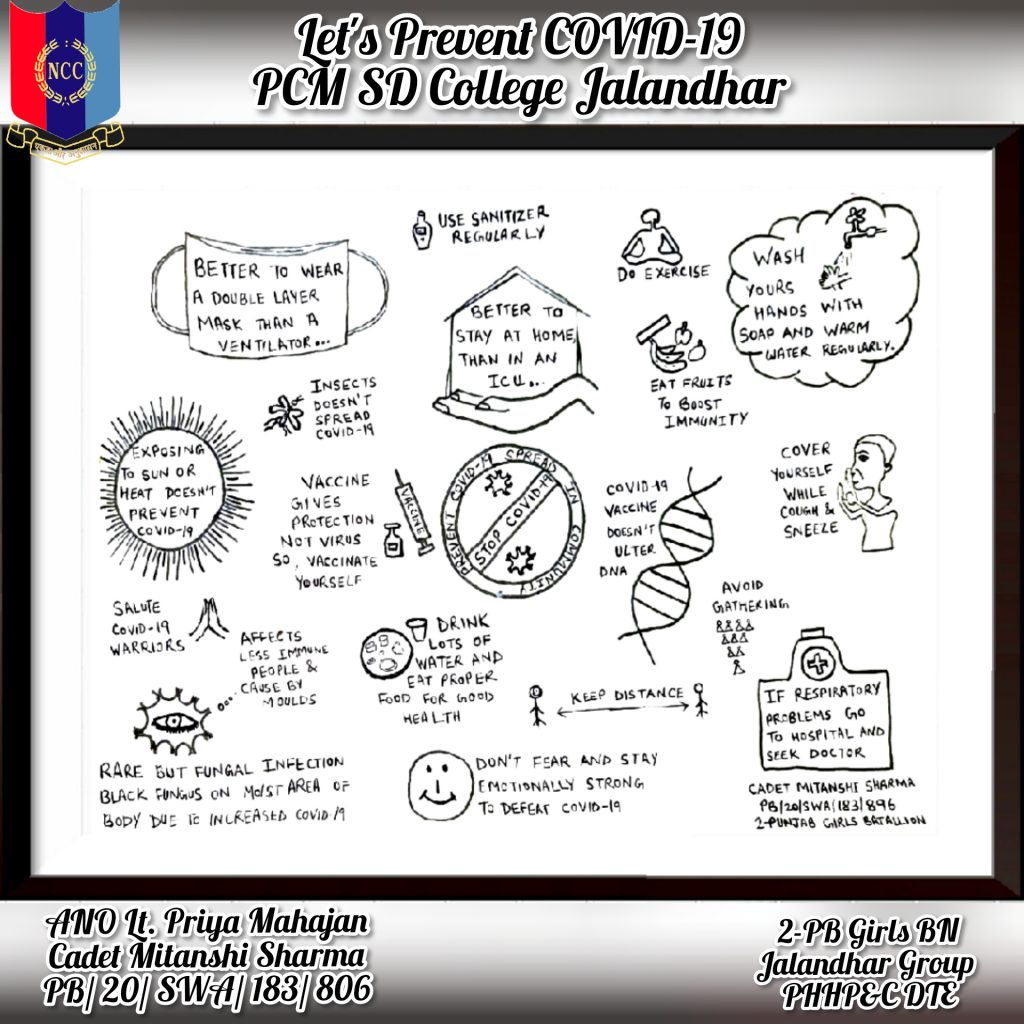 Let's Prevent COVID-19
PCM SD College Jalandhar
NCC
एकता और अनुशासन
USE SANITIZER
REGULARLY
DO EXERCISE
WASH
YOURS
HANDS WITH
SOAP AND WARM
WATER REGULARLY.
BETTER TO WEAR
A DOUBLE LAYER
MASK THAN A
VENTILATOR...
BETTER TO
STAY AT HOME,
THAN IN AN
ICU...
EAT FRUITS
TO BOOST
IMMUNITY
INSECTS
DOESN'T
SPREAD
COVID-19
EXPOSING
TO SUN OR
HEAT DOESN'T
PREVENT
COVID-19
VACCINE
GIVES
PROTECTION
NOT VIRUS
SO, VACCINATE
YOURSELF
VACCINE
PREVENT COVID-19 SPREAD IN COMMUNITY
STOP COVID-19
COVID-19
VACCINE
DOESN'T
ULTER
DNA
COVER
YOURSELF
WHILE
COUGH &
SNEEZE
SALUTE
COVID-19
WARRIORS
AFFECTS
LESS IMMUNE
PEOPLE &
CAUSE BY
MOULDS
DRINK
LOTS OF
WATER AND
EAT PROPER
FOOD FOR GOOD
HEALTH
AVOID
GATHERING
KEEP DISTANCE
IF RESPIRATORY
PROBLEMS GO
TO HOSPITAL AND
SEEK DOCTOR
RARE BUT FUNGAL INFECTION
BLACK FUNGUS ON MOIST AREA OF
BODY DUE TO INCREASED COVID-19
DON'T FEAR AND STAY
EMOTIONALLY STRONG
TO DEFEAT COVID-19
CADET MITANSHI SHARMA
PB/20/SWA/183/896
2-PUNJAB GIRLS BATALLION
ANO Lt. Priya Mahajan
Cadet Mitanshi Sharma
PB/ 20/ SWA/ 183/ 806
2-PB Girls BN
Jalandhar Group
PHHP&C DTE